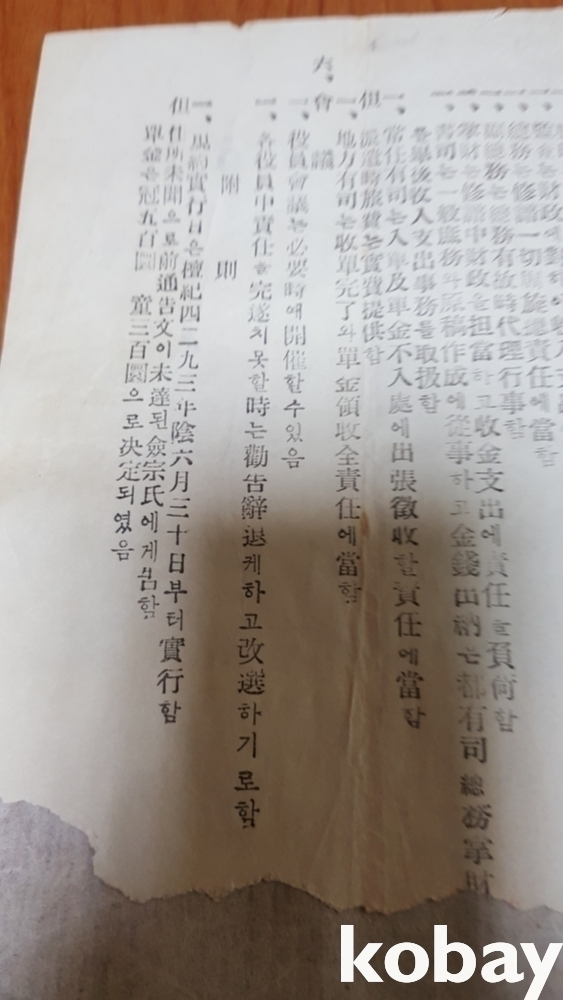 總務는修譜一切周旋總責任에當함
副總務는總務有故時代理行事함
掌財는修譜中財政을担當하고收金支出에責任을負荷함
書司는一般庶務와原稿作成에從事하고金錢出納은都有司總務掌財
畢後收入支出事務를取扱함
一、常任有司는入單及單金不入處에出張徵收할責任에當함
但 派遣時旅費는實費提供함
一、地方有司는收單完了와單金領收全責任에當함
六、會議
一、役員會議는必要時에開催할수있음
一、各役員中責任을完遂치못할時는勸告辭退케하고改選하기로함
附則
一、規約實行日은檀紀四二九三年陰六月三十日부터實行함
但 住所未聞으로前通告文이未達된僉宗氏에게
單金은冠五百圜 童三百圜으로決定되였음
kobay